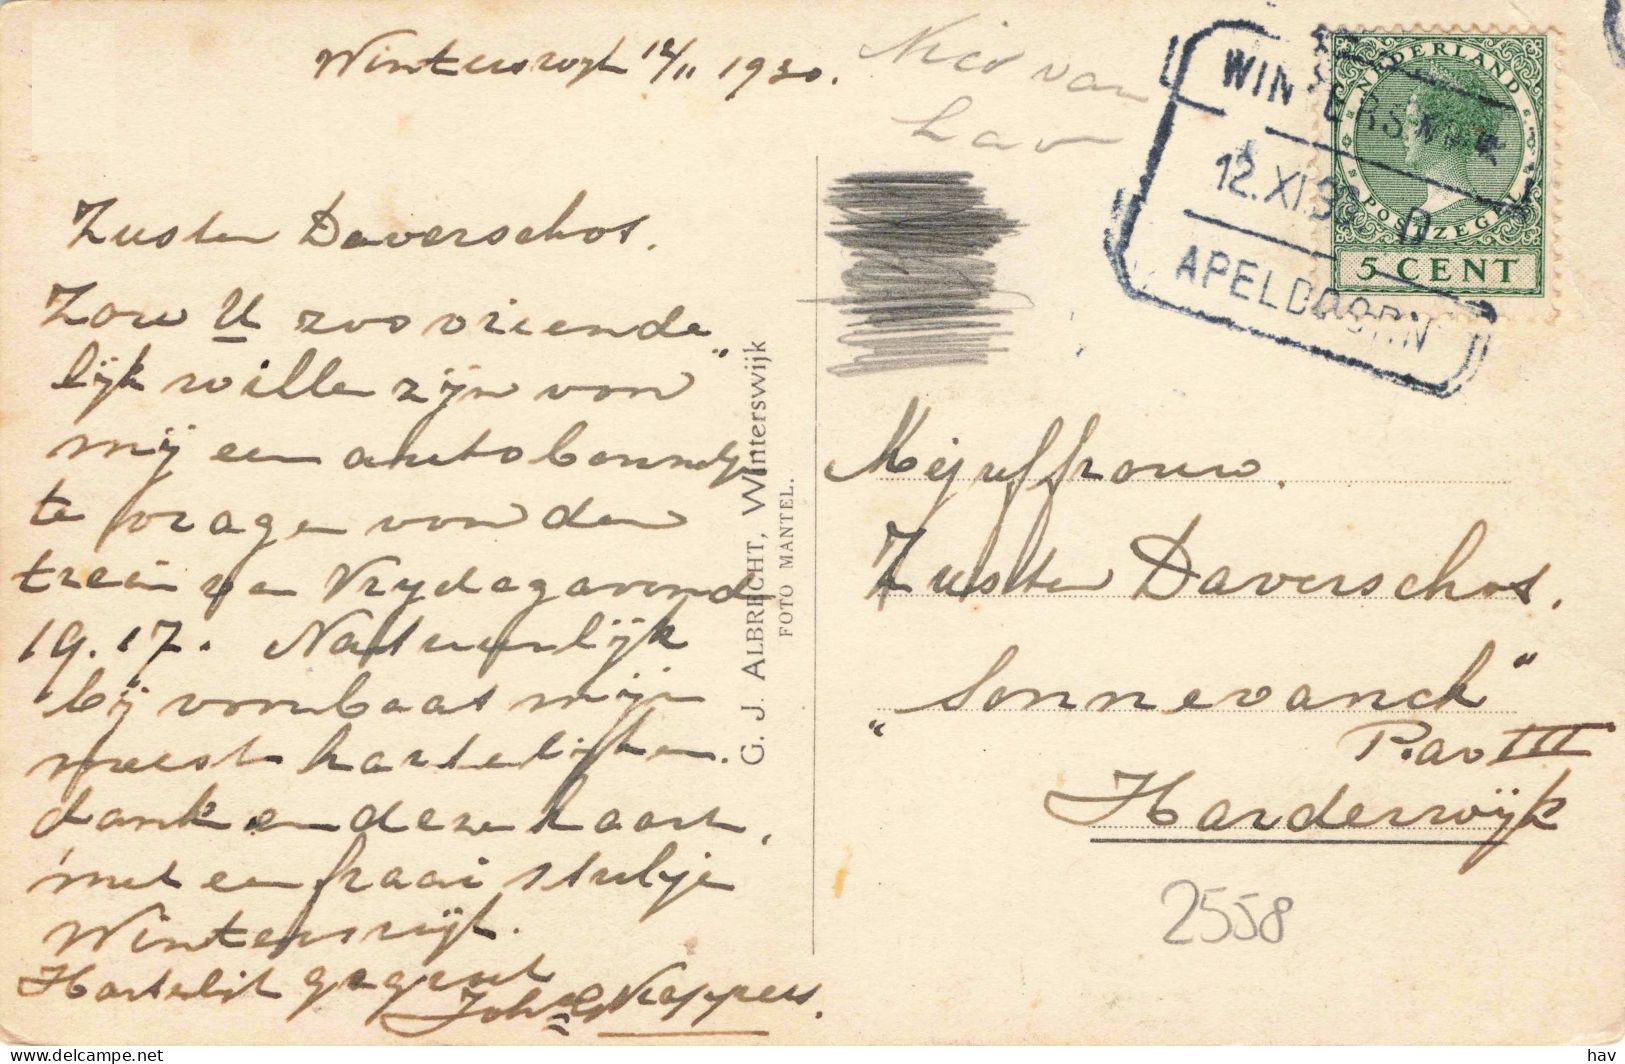 Winterswijk 12/11 1930.
Zuster Daverschot.
Zou U zoo vriende„
lijk willen zijn voor
mij een autobonnetje
te vragen voor den
trein van Vrydagavond
19.17. Natuurlijk
bij voorbaat mijn
meest hartelijken
dank en deze kaart,
met een fraai stukje
Winterswijk.
Hartelijk gegroet
Joh G Kappers.
G. J. ALBRECHT, Winterswijk
FOTO MANTEL.
van
NEDERLAND
POSTZEGEL
5 CENT
WINTERSWIJK
12.XI.30 D
APELDOORN
Mejuffrouw.
Zuster Daverschot.
„Sonnevanck"
Pav III
Harderwijk
2558
hav